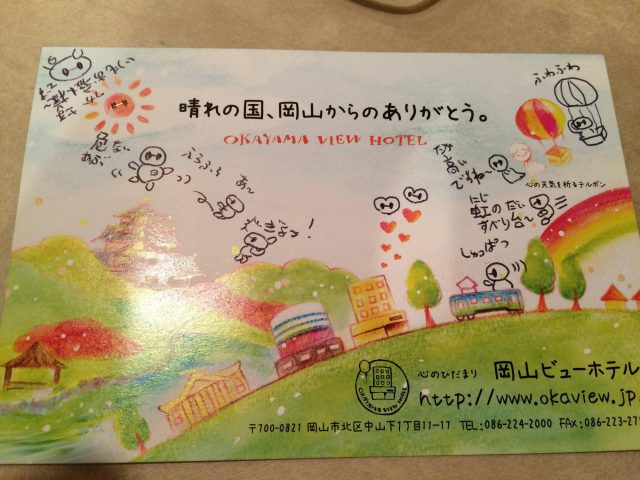 晴れの国、岡山からのありがとう。
OKAYAMA VIEW HOTEL
ふわふわ
危ない
ふらふら
あ〜
心の天気を祈るテルボン
にじ
虹の
すべり台〜
しゅっぱつ
OKAYAMA VIEW HOTEL
心のひだまり 岡山ビューホテル
http://www.okaview.jp
〒700-0821 岡山市北区中山下1丁目11-17 TEL:086-224-2000 FAX:086-223-27